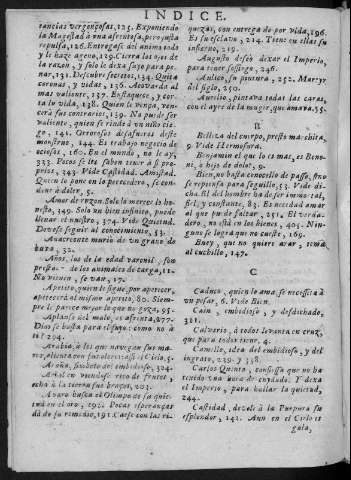 INDICE.
tancias vergonçosas, 125. Exponiendo
la Magestad à una afrentosa, pero justa
repulsa, 126. Entregase del animo todo
y le haze ageno, 129. Cierra los ojos de
la razon, y solo le dexa suyo para pe-
nar, 131. Descubre secretos, 134. Quita
coronas, y vidas, 136. Acovarda al
mas valiente, 137. Enflaquece, y cor-
ta la vida, 138. Quien le vença, ven-
cerà sus contrarios, 139. No puede ser
valiente, quien se rinde à un niño cie-
go, 141. Orrorosos desafueros deste
monstruo, 144. Es trabajo negocio de
ociosos, 160. En el mundo, no le ay,
333. Pocos se les saben tener à si pro-
prios, 343. Vide Castidad. Amistad.
Quien lo pone en lo perecedero, se con-
dena à dolor, 5.
Amor de razon. Solo la merece lo ho-
nesto, 349. Solo un bien infinito, puede
llenar al nuestro, 374. Vide Quietud.
Deveſe seguir al conocimiento, 53.
Anacreonte murio de un grano de
huva, 32.
Años, los de la edad varonil, son
presta-- de los animales de carga, 11.
No vienen, se van, 17.
Apetito, quien le sigue, por apetecer,
apetecerà al mismo apetito, 80. Siem-
pre le parece mejor lo que no goza, 95.
Aplauso del malo, es afrenta, 277.
Dios se busta para el suyo: como no à
ser, 294.
Arabio, à los que navegan sus ma-
res, alienta con sus aromas el Cielo, 5.
Araña, simbolo del embidioso, 324.
Arbol en viendose rico de frutos,
echo à la tierra sus braços, 203.
Avaro busca el Olimpo de su quie-
tud en el oro, 292. Pocas esperanças
dà de su remedio, 191. Caese con las ri-
quezas, con entrega de por vida, 196.
Es su esclavo, 214. Tiene en ellas su
infierno, 219.
Augusto deseò dexar el Imperio,
para tener sosiego, 246.
Aulico, su pintura, 252. Martyr
del siglo, 250.
Aurelio, pintava todas las caras,
con el ayre de la muger, que amava. 55.
B
Belleza del cuerpo, presto marchita,
9. Vide Hermosura.
Benjamin el que lo es mas, es Beno-
ni, è hijo de dolor, 9.
Bien, no basta conocello de passo, sino
se repensa para seguillo, 53. Vide di-
cha. El del hombre ha de ser inmortal,
fiel, y constante, 83. Es necedad amar
al que puede faltar, 251. El verda-
dero, no està en los bienes, 405. Nin-
guno se logra que no cueste, 169.
Buey, que no quiere arar, teme
al cuchillo, 147.
C
Caduco, quien lo ama, se necessita à
un pesar, 6. Vide Bien.
Cain, embidioso, y desdichado,
321.
Calvario, à todos levanta en cruz,
que para todos tiene, 4.
Camello, idea del embidioso, y del
ingrato, 229. y 338.
Carlos Quinto, confiessa que no ha
tenido una hora de cuydado. Y dexa
el Imperio, para hallar la quietud,
244.
Castidad, deveſe à la Purpura su
esplendor, 142. Aun en el Cielo es
gala,